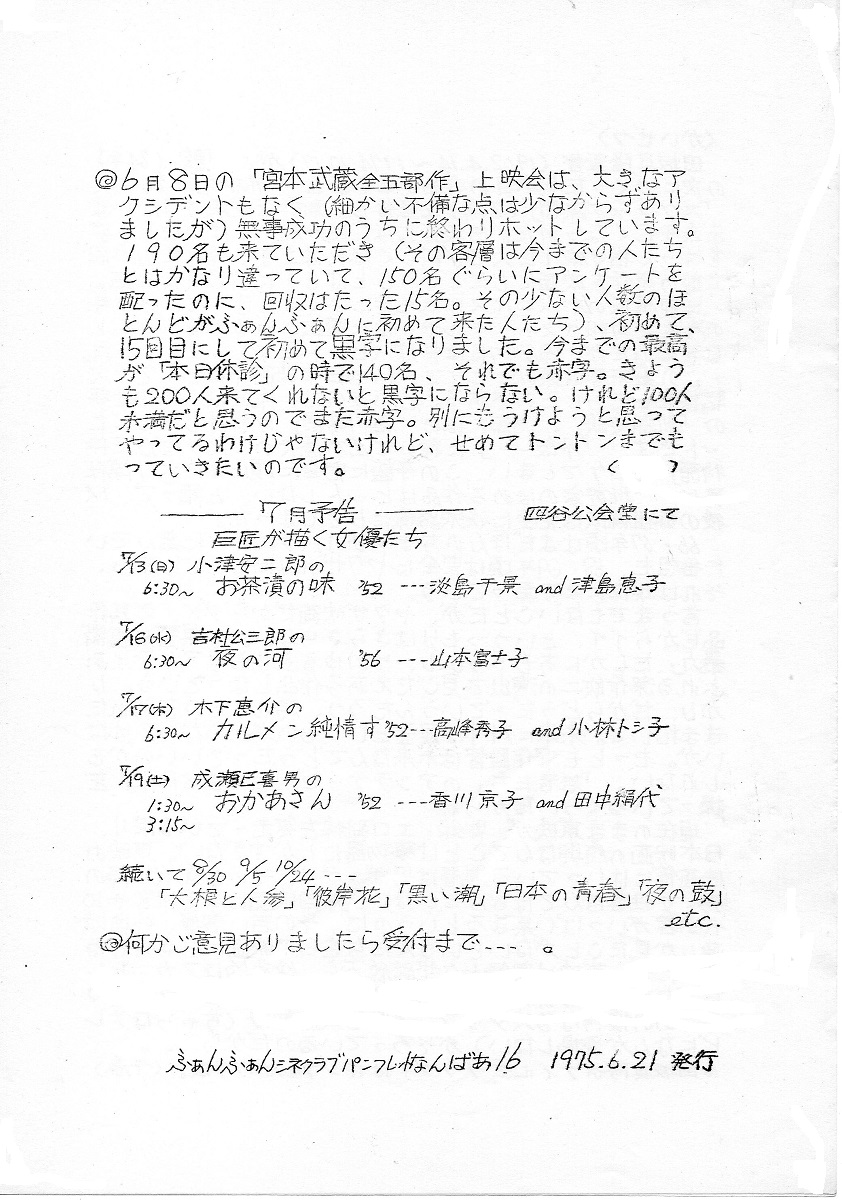 ◎6月8日の「宮本武蔵全五部作」上映会は、大きなア
クシデントもなく（細かい不備な点は少なからずあり
ましたが）無事成功のうちに終わりホットしています。
190名も来ていただき（その客層は今までの人たち
とはかなり違っていて、150名ぐらいにアンケートを
配ったのに、回収はたった15名。その少ない人数のほ
とんどがふぁんふぁんに初めて来た人たち）、初めて、
15回目にして初めて黒字になりました。今までの最高
が「本日休診」の時で140名、それでも赤字。きょう
も200人来てくれないと黒字にならない。けれど100人
未満だと思うのでまた赤字。別にもうけようと思って
やってるわけじゃないけれど、せめてトントンまでも
っていきたいのです。 （ ）
――― 7月予告 ――― 四谷公会堂にて
巨匠が描く女優たち
7/13(日) 小津安二郎の
6:30～ お茶漬の味 '52 ---淡島千景 and 津島恵子
7/16(水) 吉村公三郎の
6:30～ 夜の河 '56 ---山本富士子
7/17(木) 木下恵介の
6:30～ カルメン純情す '52---高峰秀子 and 小林トシ子
7/19(土) 成瀬巳喜男の
1:30～ おかあさん '52 ---香川京子 and 田中絹代
3:15～
続いて 8/30 9/5 10/24 ---
「大根と人参」「彼岸花」「黒い潮」「日本の青春」「夜の鼓」
etc.
◎何かご意見ありましたら受付まで--- 。
ふぁんふぁんシネクラブパンフレットなんばあ16 1975.6.21 発行